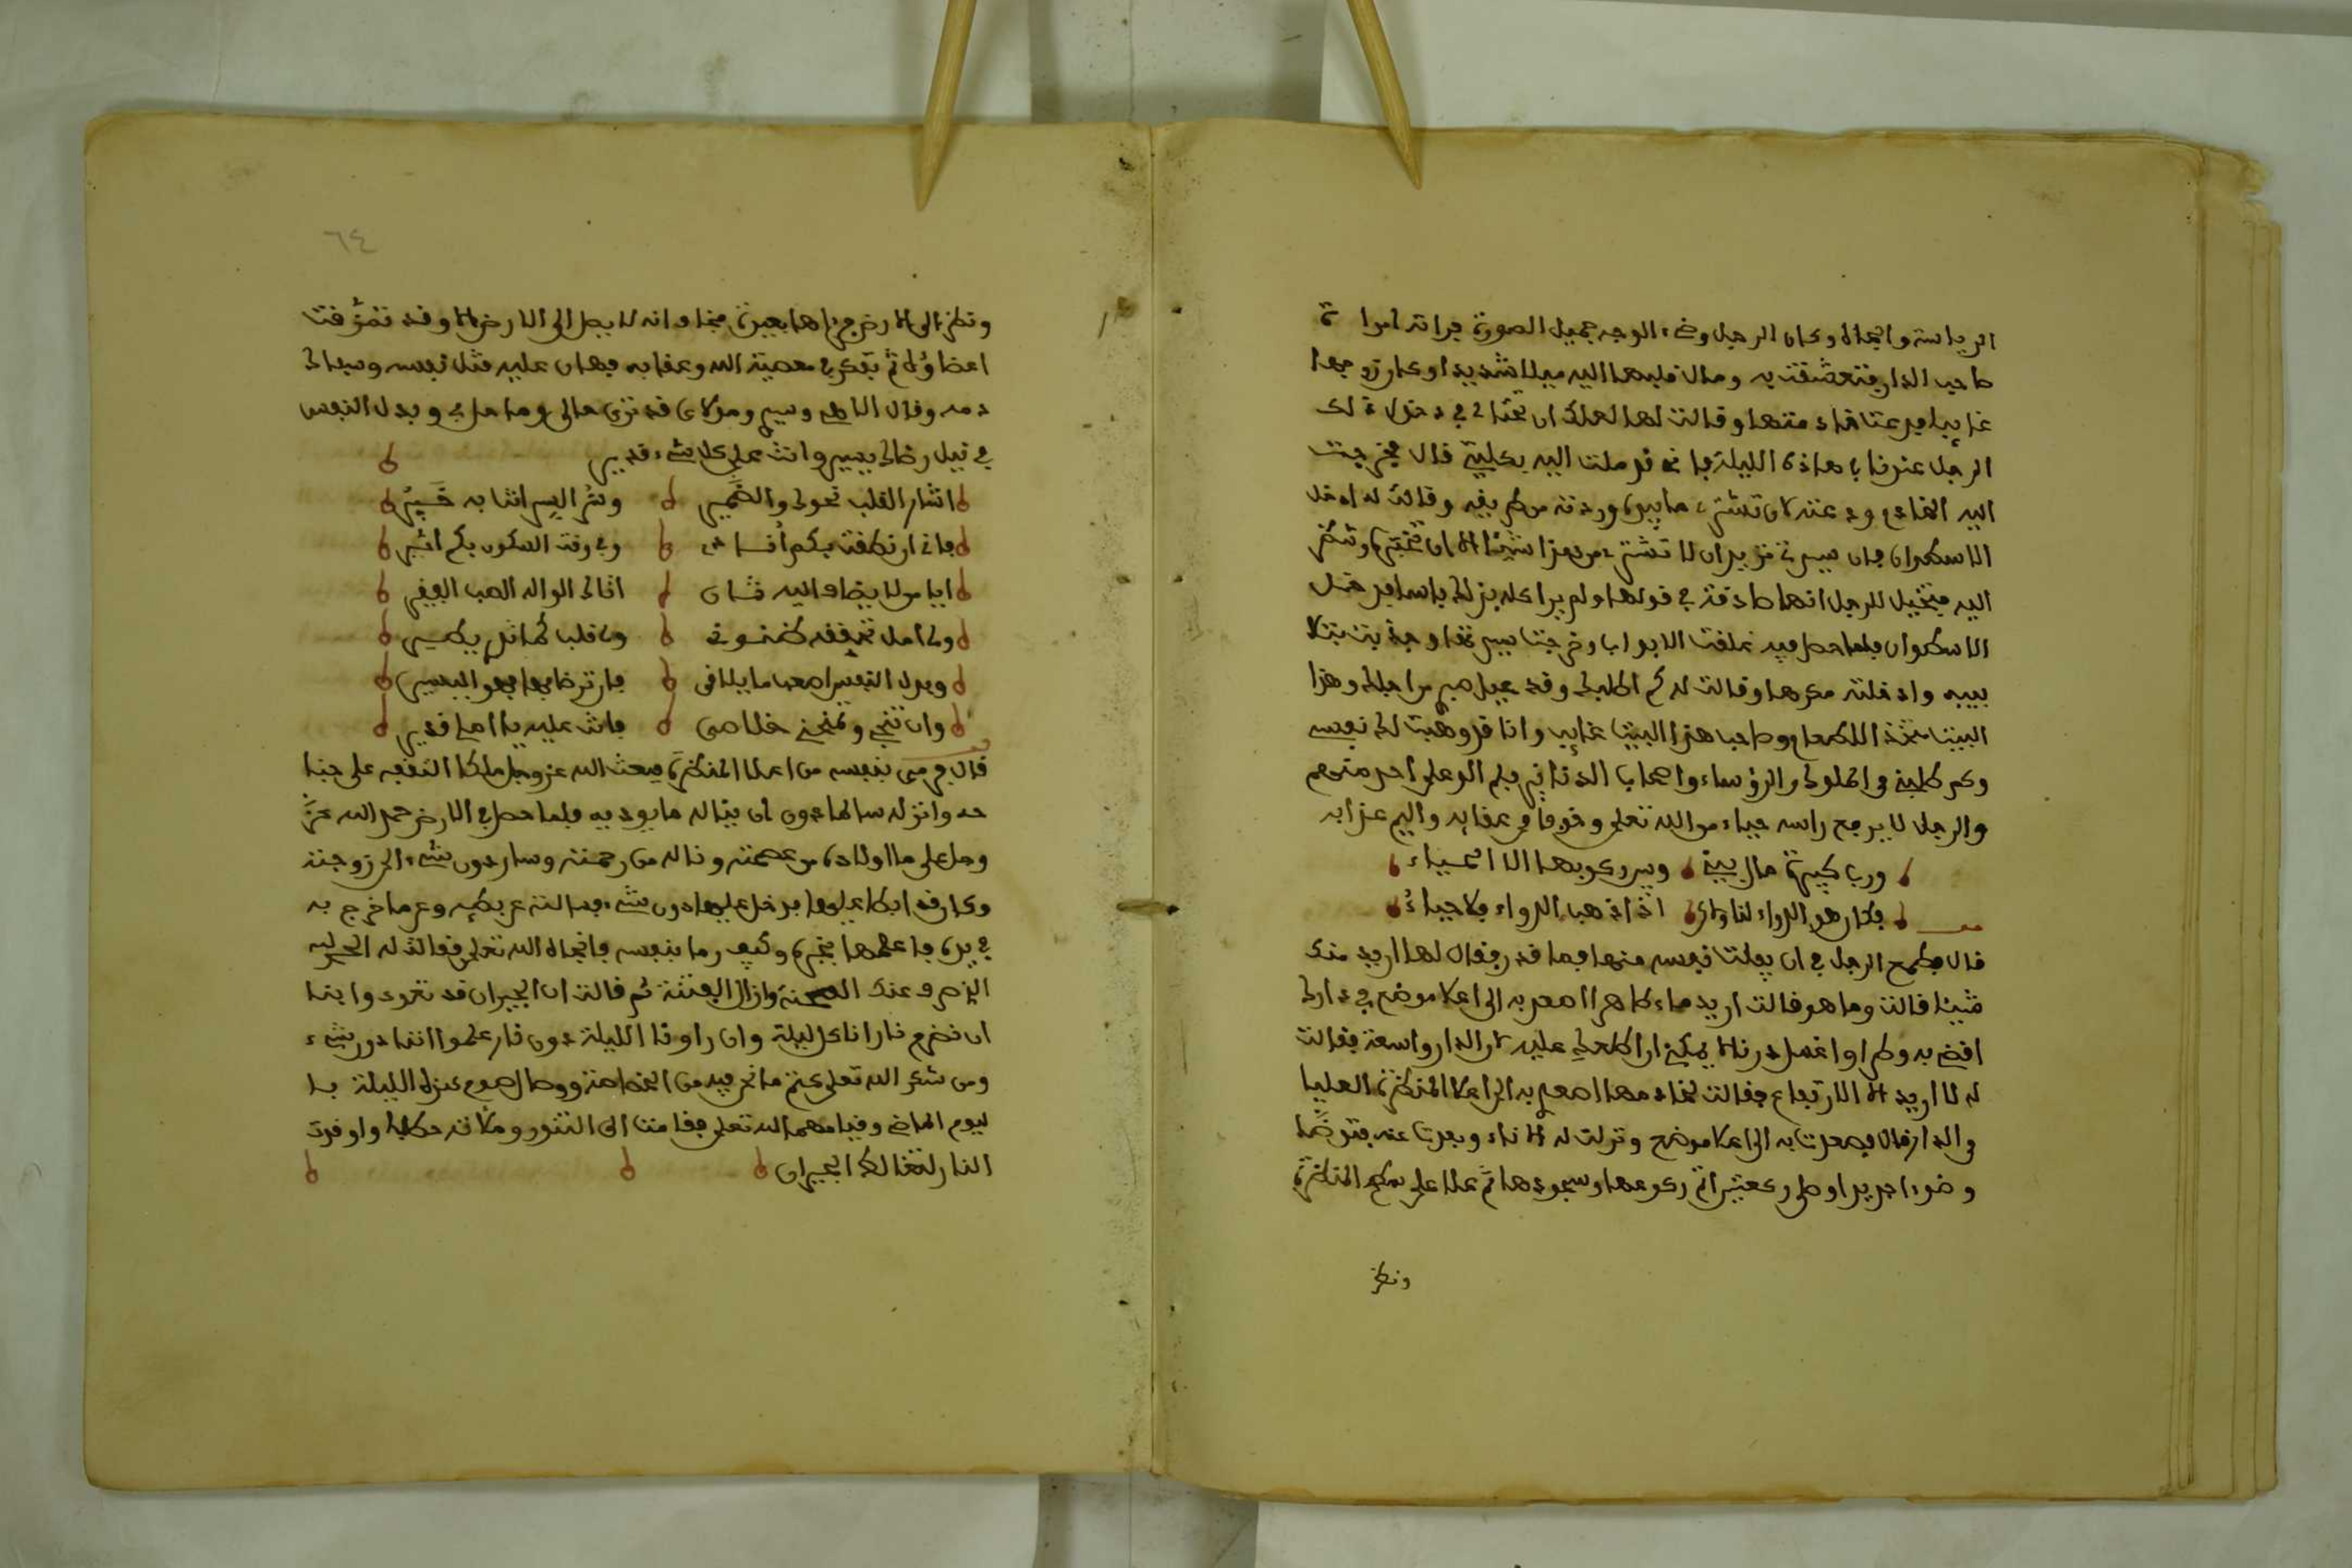 الرياسة والجاه وكان الرجل وضيء الوجه جميل الصورة فراته امراة
صاحب الدار فتعشقت به ومال قلبها اليه ميلا شديدا وكان زوجها
غايبا فدعت خادمتها وقالت لها لعلك ان تحتالي في دخول ذلك
الرجل عندنا هاذه الليلة فاني قد ملت اليه بكليتي قال فخرجت
اليه الخادم ودعته لان تشتري ما بيده وردته من طريقه وقالت له ادخل
الاسطوان فان سيدتي تريد ان لا تشتري من هذا شيئا الا ان تختبره وتنظر
اليه فتخيل للرجل انها صادقة في قولها ولم ير بذلك باسا فدخل
الاسطوان فلما حصل فيه غلقت الابواب وخرجت سيدتها وجذبت
بيده وادخلته معها وقالت له كم اطلبك وقد عيل صبري من اجلك وهذا
البيت الطعام وصاحب هذا البيت غايب وانا قد وهبت لك نفسي
وكم طلبني من الملوك والرؤساء واصحاب الدنانير فلم الو على احد منهم
والرجل لا يرفع راسه حياء من الله تعلى وخوفا من عقابه واليم عذابه
ورب كبيرة ما حال بيني وبين ركوبها الا الحياء
فكان هو الدواء لنا ولكن اذا ذهب الدواء فلا حياء
قال فطمع الرجل في ان يفلت نفسه منها فما قدر فقال لها اريد منك
شيئا قالت وما هو قال اريد ماء طاهرا اصعد به الى اعلا موضع في دارك
اقضي به وطرا واغسل درنا لا يمكنني ان اطلعك عليه لان الدار واسعة فقالت
له لا اريد الا الارتفاع فقالت لخادمها اصعدي به الى اعلا المنظرة العليا
من الدار قال فصعدت به الى اعلا موضع ونزلت له الاناء وبعدت عنه فتوضا
وضوءا جديدا وصلى ركعتين اتم ركوعها وسجودها ثم علا على سطح المنظرة
ونظر
٦٤
ونظر الى الارض فراها بعيدة فخاف انه لا يصل الى الارض الا وقد تمزقت
اعضاؤه ثم تفكر في معصية الله وعقابه فهان عليه قتل نفسه وسيلان
دمه وقال الاهي وسيدي ومولاي قد ترى حالي وما حل بي وبذل النفس
في نيل رضاك يسير وانت على كل شيء قدير
اشار القلب نحوك والضمير وسر السر انت به خبير
فاني ان نطقت بكم انادي وفي وقت السكون بكم اشير
ايا من لا يضاف اليه ثان اتاك الواله الصب الفقير
ولي امل تحققه ظنوني ولي قلب كما تدري يطير
وبذل النفس اصعب ما يلاقي فان ترضا بها فهو اليسير
وان تنجي وتمنحني خلاصي فانت عليه يا املي قدير
قال فرمى بنفسه من اعلا المنظرة فبعث الله عز وجل ملكا التقفه على جنا
حه وانزله سالما دون ان يناله ما يوذيه فلما حصل في الارض حمد الله عز
وجل على ما اولاه من عصمته وناله من رحمته وسار دون شيء الى زوجته
وكان قد ابطا عليها فدخل عليها دون شيء فسالته عن بطئه وعن ما خرج به
في يده فاعلمها بخبره وكيف رما بنفسه فانجاه الله تعلى فقالت له الحمد لله
الذي صرف عنك المحنة وازال الفتنة ثم قالت ان الجيران قد تعودوا منا
ان نضرم نارا في كل ليلة وان راونا الليلة دون نار علموا اننا دون شيء
ومن شكر الله تعلى كتم ما نحن فيه من الخصاصة ووصال صوم هذه الليلة با
ليوم الماضي وقيامها لله تعلى فقامت الى التنور وملاته حطبا واوقدت
النار لتغالط الجيران